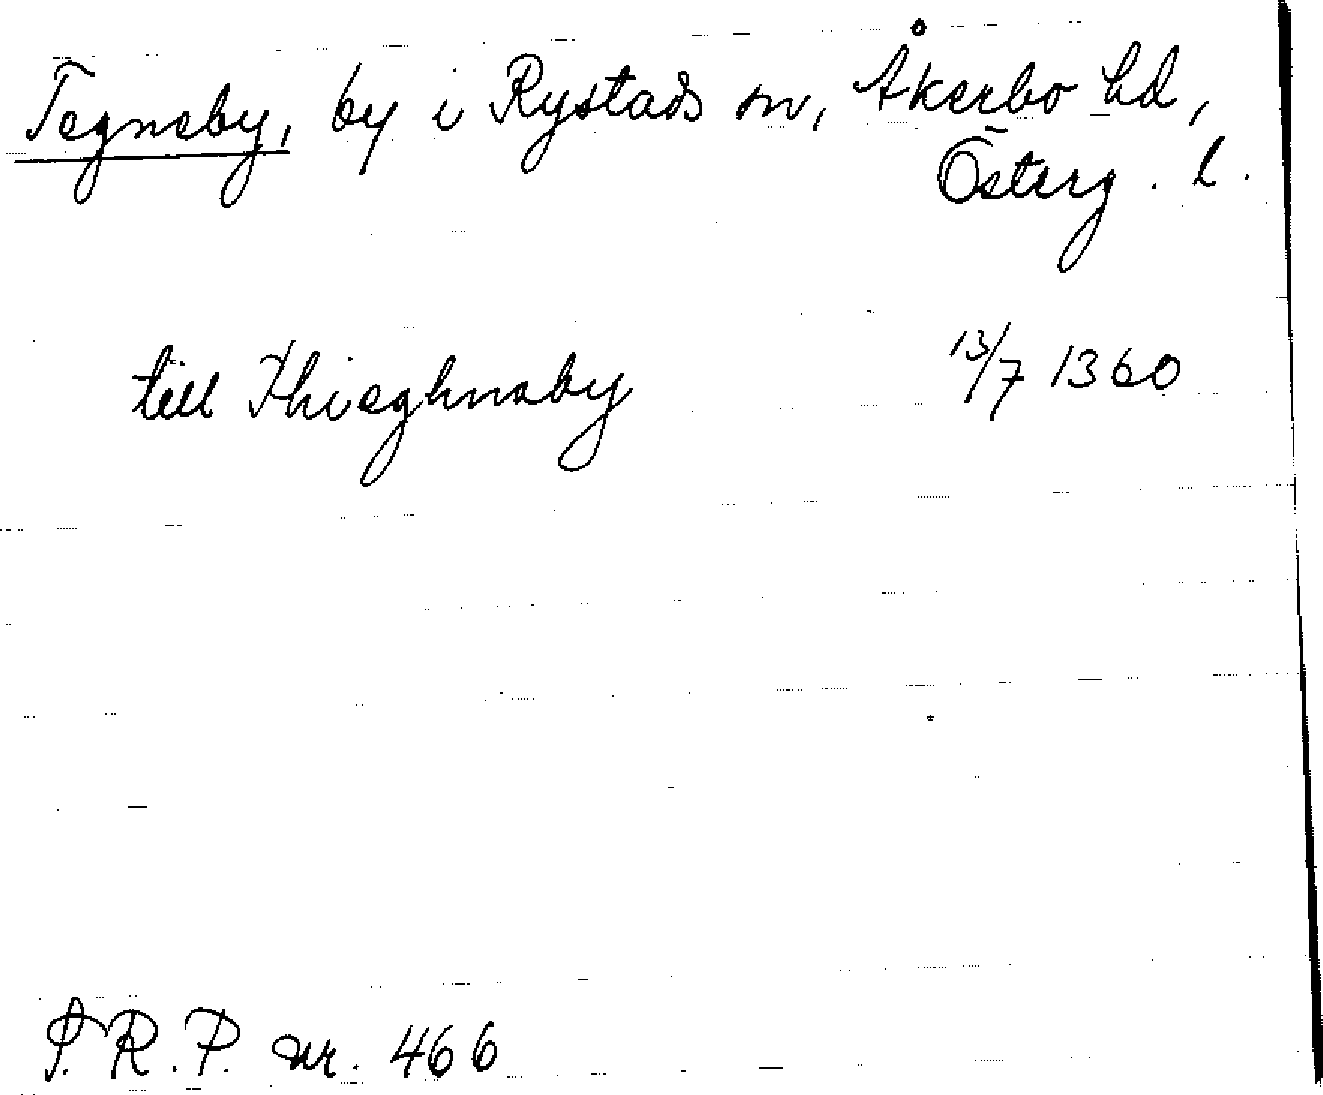 Tegneby, by i Rystads sn, Åkerbo hd,
Österg. l.
till Thieghnaby 13/7 1360
S.R.P. nr. 466